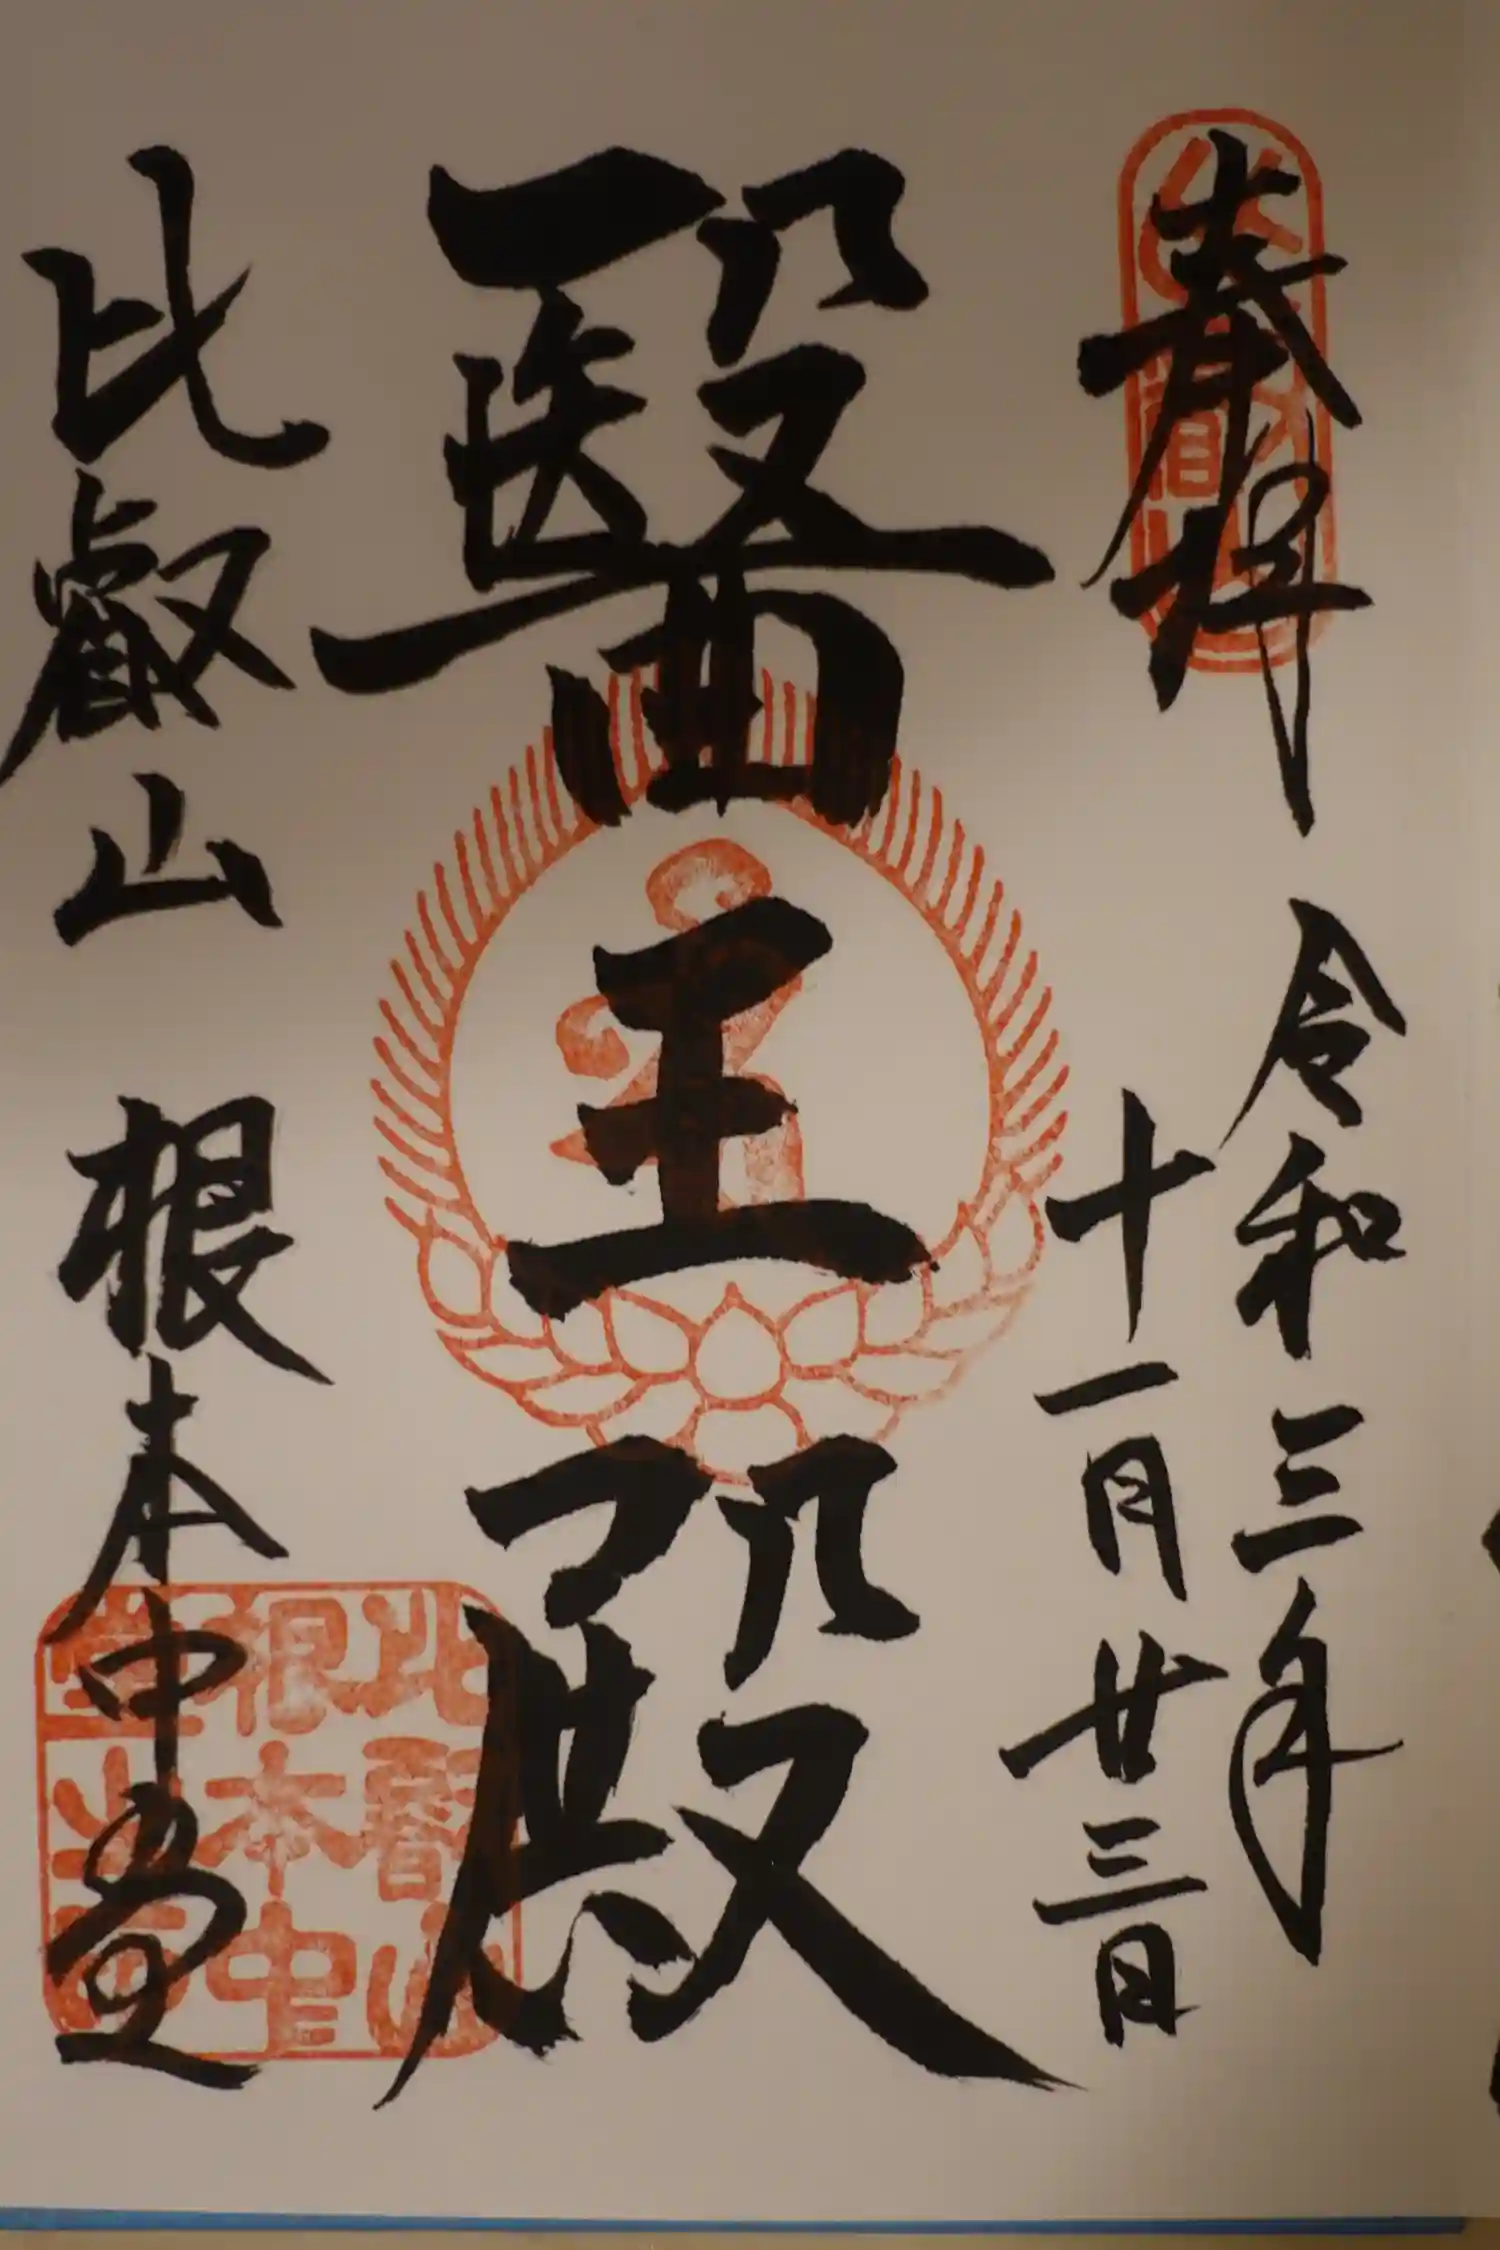 奉拝
令和三年
十一月廿三日
醫王殿
比叡山 根本中堂
比叡山
根本中
堂